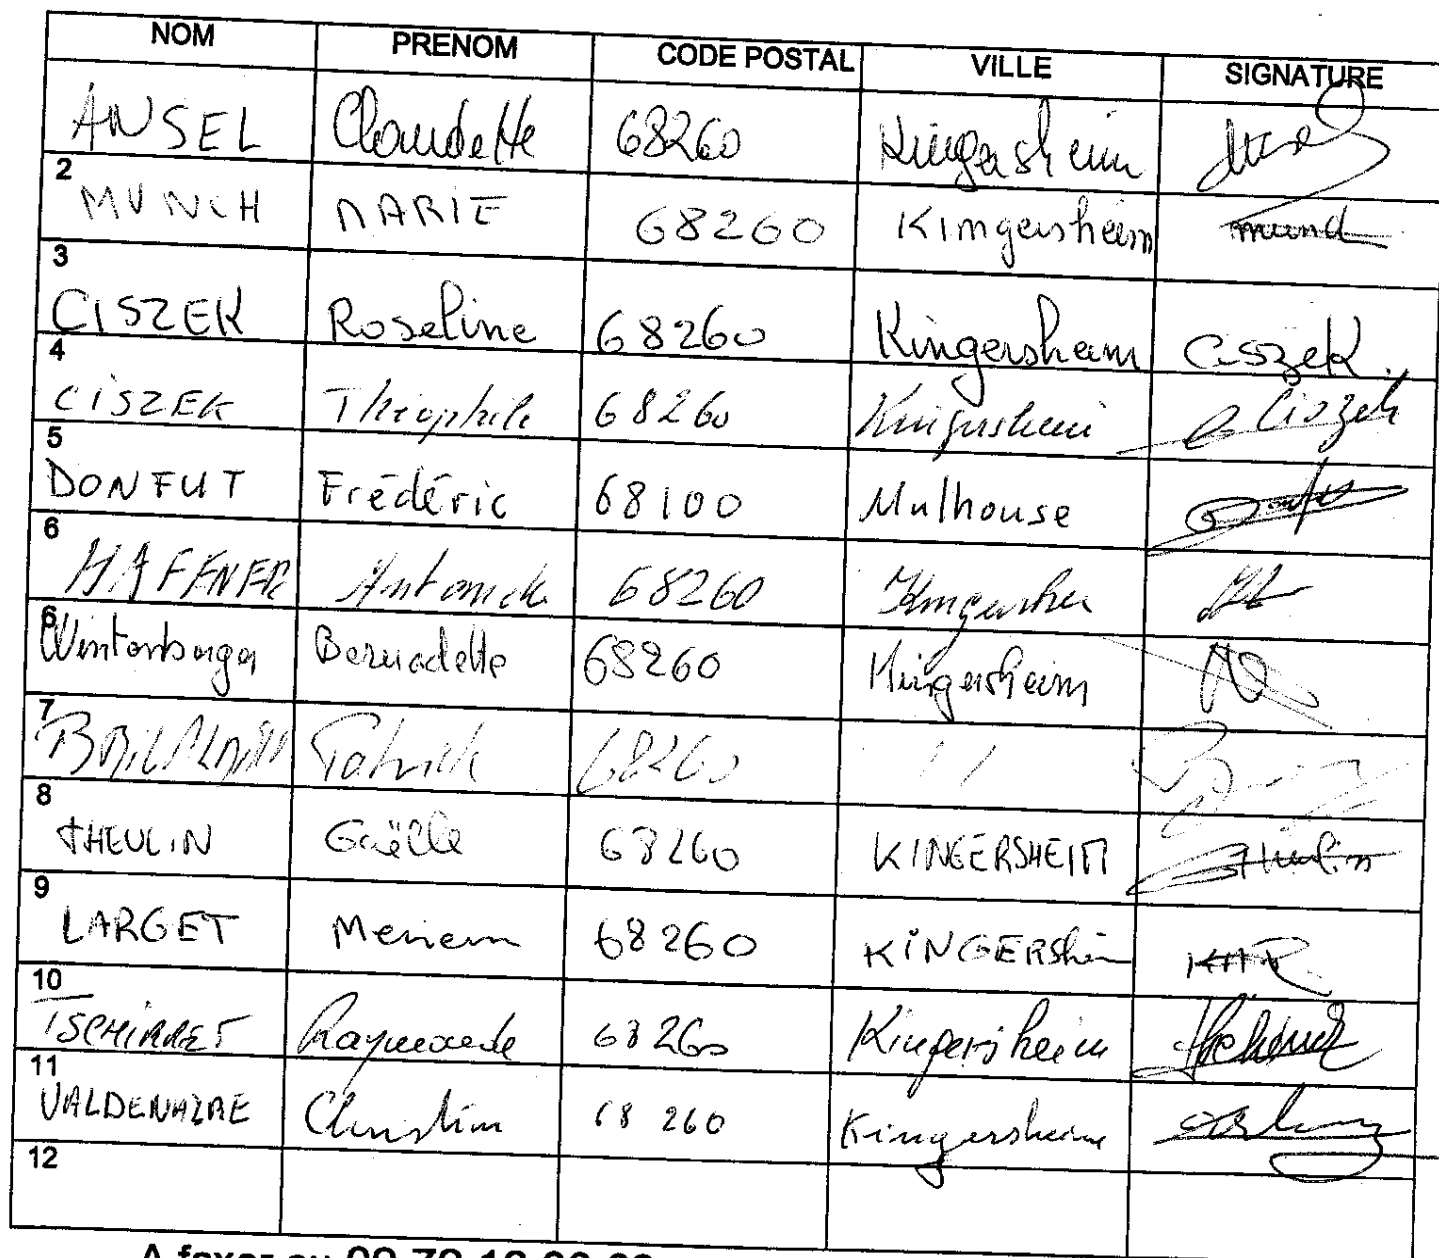 NOM PRENOM CODE POSTAL VILLE SIGNATURE
ANSEL Claudette 68260 Kingersheim
2
MUNCH MARIE 68260 Kingersheim
3
CISZEK Roseline 68260 Kingersheim CISZEK
4
CISZEK Théophile 68260 Kingersheim Ciszek
5
DONFUT Frédéric 68100 Mulhouse
6
HAFFNER 68260
6
Bernadette 68260 Kingersheim
7
Patrick 68260 ''
8
THEULIN Gaëlle 68260 KINGERSHEIM Theulin
9
LARGET Meriem 68260
10
TSCHIRRET Raymonde 68260 Kingersheim
11
68260 Kingersheim
12
A faxer au